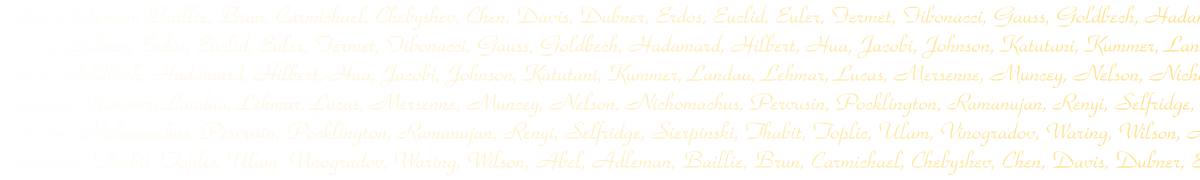 Adleman, Baillie, Brun, Carmichael, Chebyshev, Chen, Davis, Dubner, Erdos, Euclid, Euler, Fermet, Fibonacci, Gauss, Goldbach, Hadam
Dubner, Erdos, Euclid, Euler, Fermet, Fibonacci, Gauss, Goldbach, Hadamard, Hilbert, Hua, Jacobi, Johnson, Katutani, Kummer, Lan
Goldbach, Hadamard, Hilbert, Hua, Jacobi, Johnson, Katutani, Kummer, Landau, Lehmar, Lucas, Mersenne, Muncey, Nelson, Nicho
Kummer, Landau, Lehmar, Lucas, Mersenne, Muncey, Nelson, Nichomachus, Pervusin, Pocklington, Ramanujan, Renyi, Selfridge,
Nichomachus, Pervusin, Pocklington, Ramanujan, Renyi, Selfridge, Sierpinski, Thabit, Toplic, Ulam, Vinogradov, Waring, Wilson,
Thabit, Toplic, Ulam, Vinogradov, Waring, Wilson, Abel, Adleman, Baillie, Brun, Carmichael, Chebyshev, Chen, Davis, Dubner,